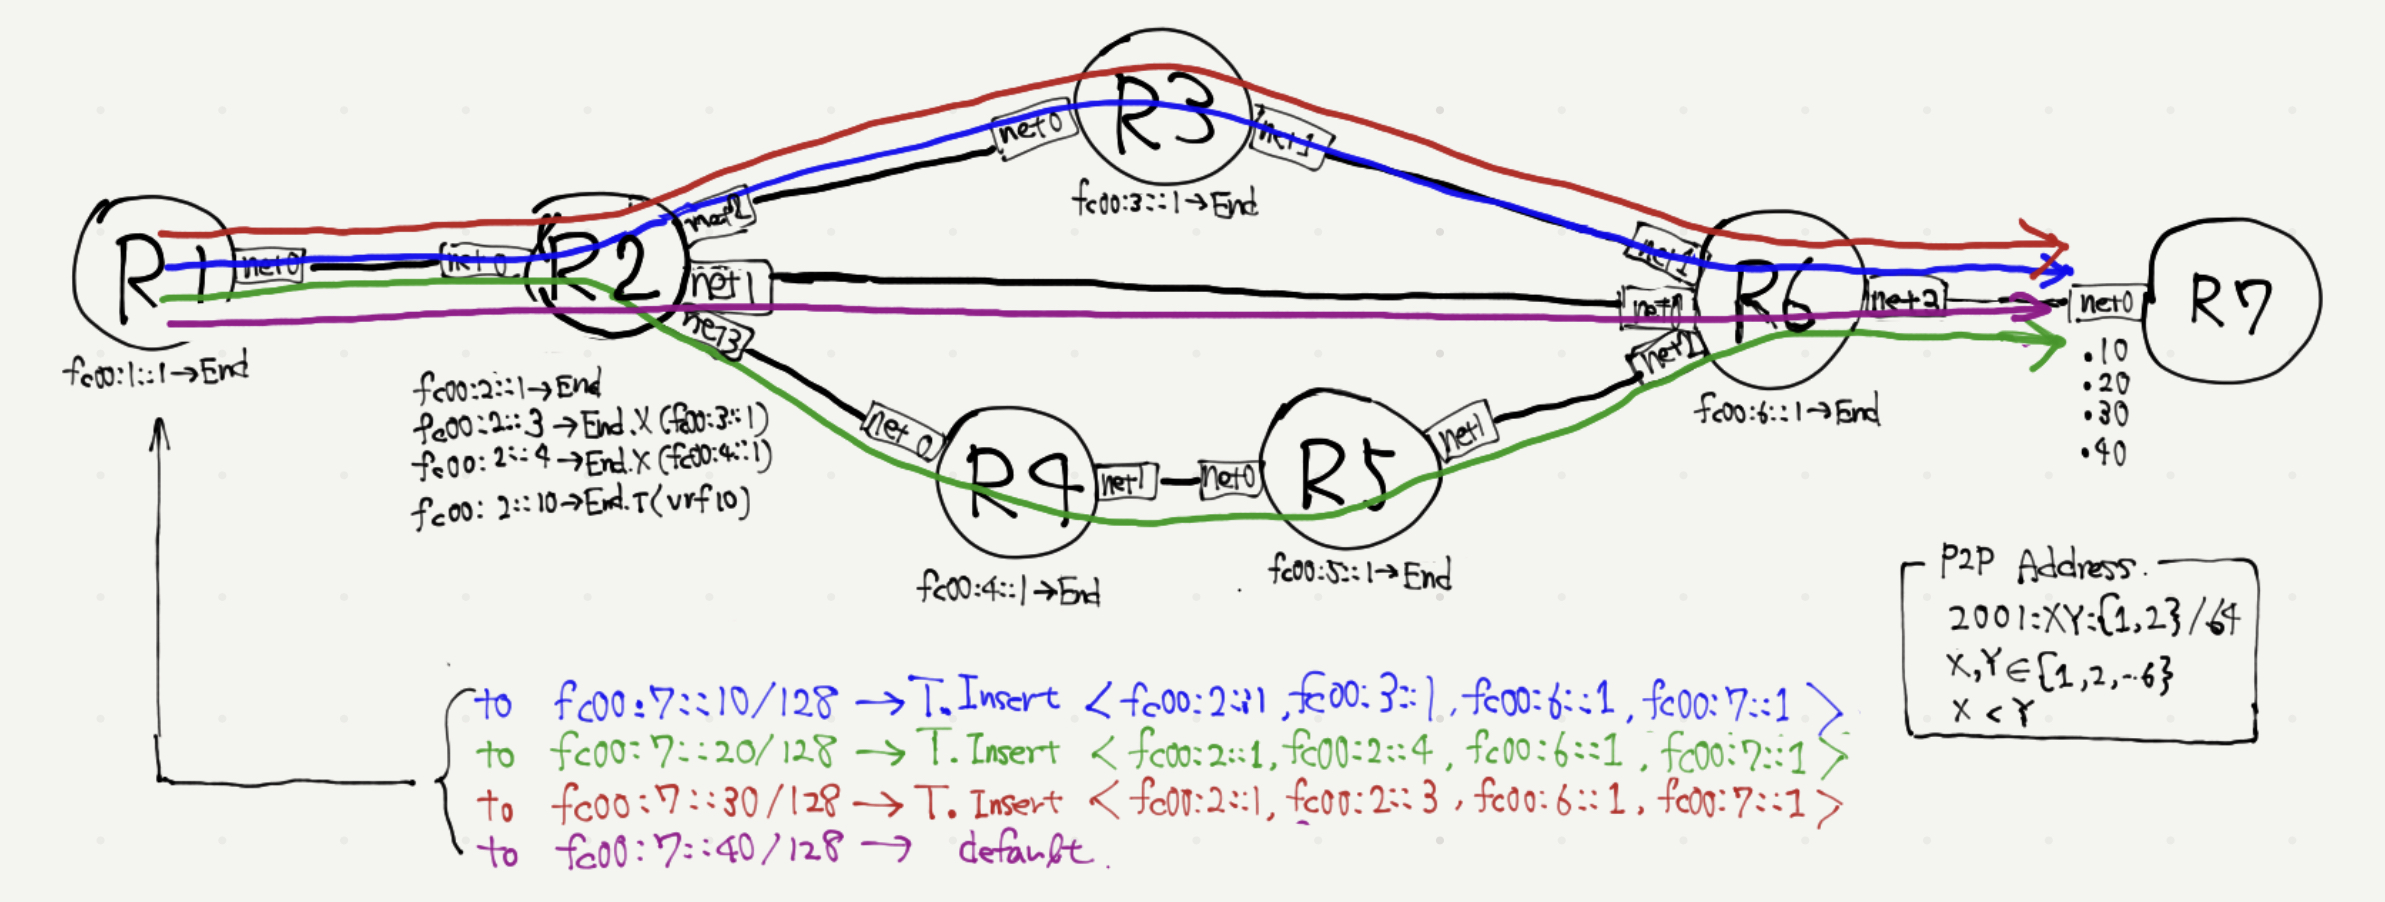 R3
net0
net1
fc00:3::1→End
R1
net0
fc00:1::1→End
net0
R2
net2
net1
net3
fc00:2::1→End
fc00:2::3→End.X(fc00:3::1)
fc00:2::4→End.X(fc00:4::1)
fc00:2::10→End.T(vrf10)
net0
R4
net1
fc00:4::1→End
net0
R5
net1
fc00:5::1→End
net1
net0
net2
R6
net3
fc00:6::1→End
net0
R7
.10
.20
.30
.40
P2P Address.
2001:XY:{1,2}/64
X,Y∈{1,2,..6}
X<Y
to fc00:7::10/128→T.Insert <fc00:2::1,fc00:3::1,fc00:6::1,fc00:7::1>
to fc00:7::20/128→T.Insert <fc00:2::1,fc00:2::4,fc00:6::1,fc00:7::1>
to fc00:7::30/128→T.Insert <fc00:2::1,fc00:2::3,fc00:6::1,fc00:7::1>
to fc00:7::40/128→default.